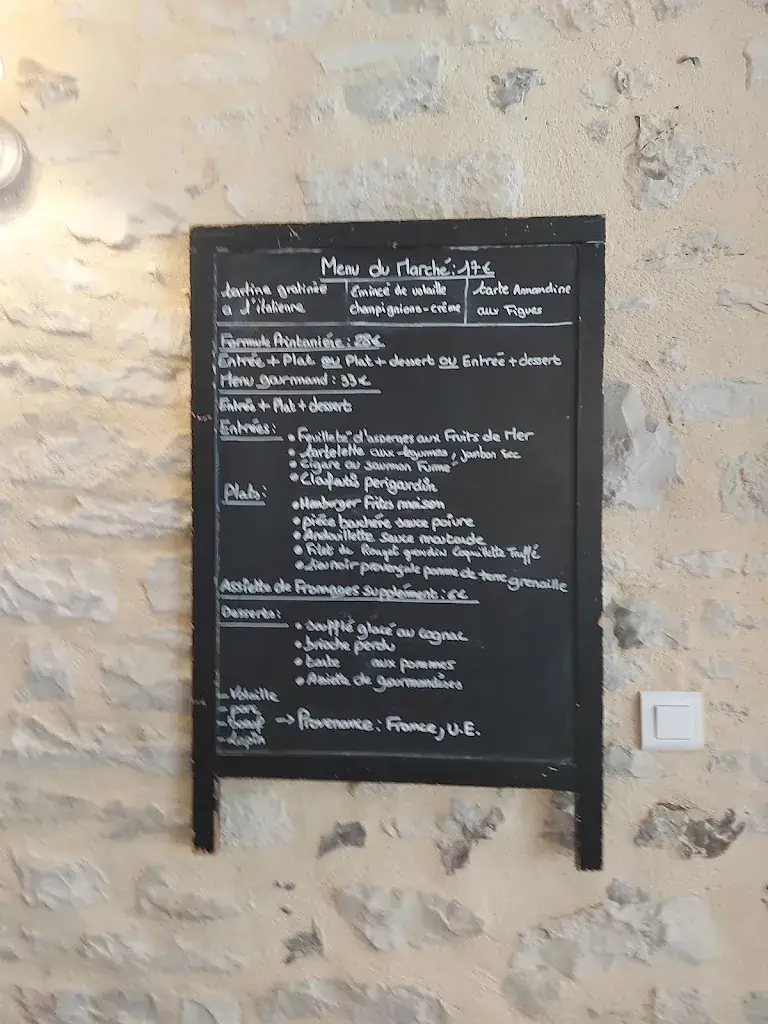 Menu du Marché : 17€
tartine gratinée
a l'italienne
Emincé de volaille
champignons-crème
tarte Amandine
aux Figues
Formule Printanière : 28€
Entrée + Plat ou Plat + dessert ou Entrée + dessert
Menu gourmand : 33€
Entrée + Plat + dessert
Entrées :
• Feuilleté d'asperges aux Fruits de Mer
• tartelette aux légumes, jambon sec
• Cigare au saumon Fumé
• Clafoutis perigordin
Plats :
• Hamburger Frites maison
• pièce bouchère sauce poivre
• Andouillette sauce moutarde
• Filet de Rouget grondin Coquillette Truffé
• provençale pomme de terre grenaille
Assiette de Fromages supplément : 6€
Desserts :
• soufflé glacé au Cognac
• brioche perdu
• tarte aux pommes
• Assiette de gourmandises
- Volaille
- porc
- boeuf
- Lapin
→ Provenance : France, U.E.